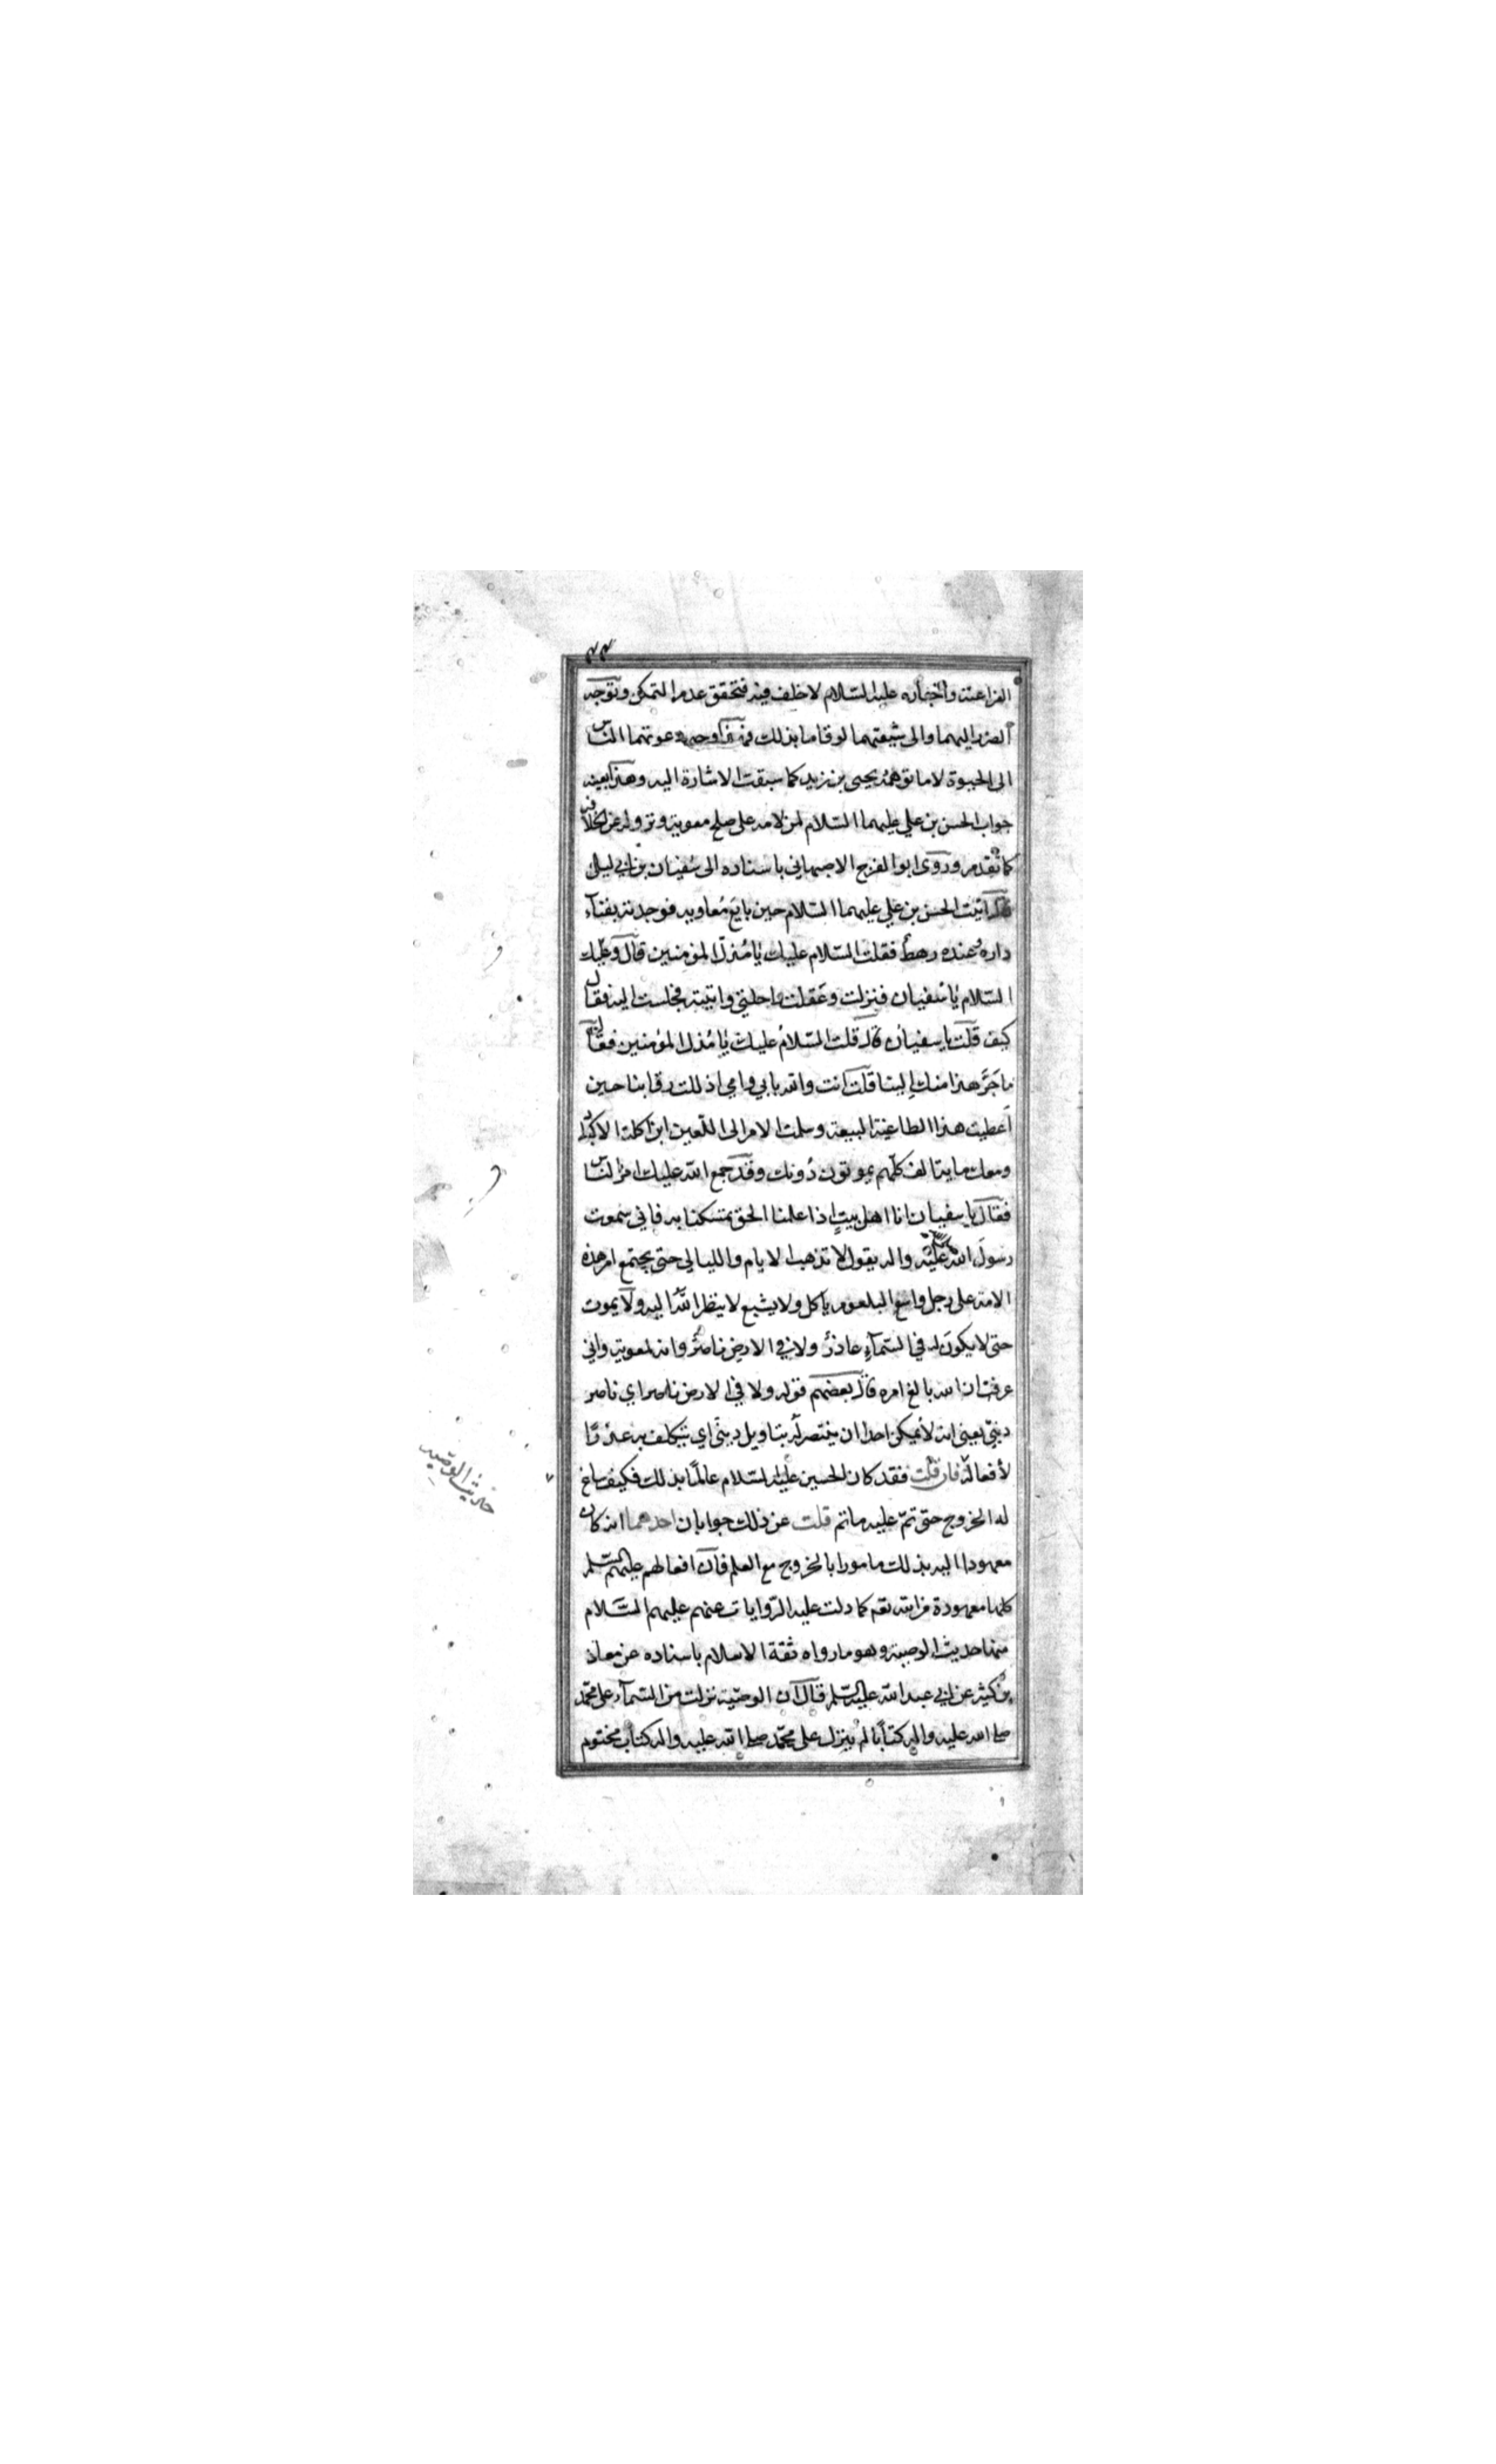 ٣٣
الفراعنة واخباره عليه السلام لا خلف فيه فتحقق عدم التمكن وتوجه
الضرر اليهما والى شيعتهما لو قاما بذلك فهذا وجه دعوتهما الناس
الى الحيوة لا ما توهمه يحيى بن زيد كما سبقت الاشارة اليه وهذا بعينه
جواب الحسن بن علي عليهما السلام لمن لامه على صلح معوية ونزوله عن الخلافة
كما تقدم وروى ابو الفرج الاصبهاني باسناده الى سفيان بن ابي ليلى
قال اتيت الحسن بن علي عليهما السلام حين بايع معاوية فوجدته بفناء
داره وعنده رهط فقلت السلام عليك يا مذل المؤمنين قال وعليك
السلام يا سفيان فنزلت وعقلت راحلتي واتيته فجلست اليه فقال
كيف قلت يا سفيان قال قلت السلام عليك يا مذل المؤمنين فقال
ما جر هذا منك الينا قلت انت والله بابي وامي اذللت رقابنا حين
اعطيت هذا الطاغية البيعة وسلمت الامر الى اللعين ابن اكلة الاكباد
ومعك ماية الف كلهم يموتون دونك وقد جمع الله عليك امر الناس
فقال يا سفيان انا اهل بيت اذا علمنا الحق تمسكنا به فاني سمعت
رسول الله عليه واله يقول لا تذهب الايام والليالي حتى يجتمع امر هذه
الامة على رجل واسع البلعوم ياكل ولا يشبع لا ينظر الله اليه ولا يموت
حتى لا يكون له في السماء عاذر ولا في الارض ناصر وانه لمعوية واني
عرفت ان الله بالغ امره قال بعضهم قوله ولا في الارض ناصر اي ناصر
ديني يعني انه لا يمكن احدا ان ينتصر له بتاويل ديني اي يتكلف به عذرا
لافعاله فان قلت فقد كان الحسين عليه السلام عالما بذلك فكيف ساغ
له الخروج حتى تم عليه ما تم قلت عن ذلك جوابان احدهما انه كان
معهودا اليه بذلك مامورا بالخروج مع العلم فان افعالهم عليهم السلم
كلها معهودة من الله تعم كما دلت عليه الروايات عنهم عليهم السلام
منها حديث الوصية وهو ما رواه ثقة الاسلام باسناده عن معاذ
بن كثير عن ابي عبد الله عليه السلم قال ان الوصية نزلت من السماء على محمد
صلى الله عليه واله كتابا لم ينزل على محمد صلى الله عليه واله كتاب مختوم
حديث الوصية